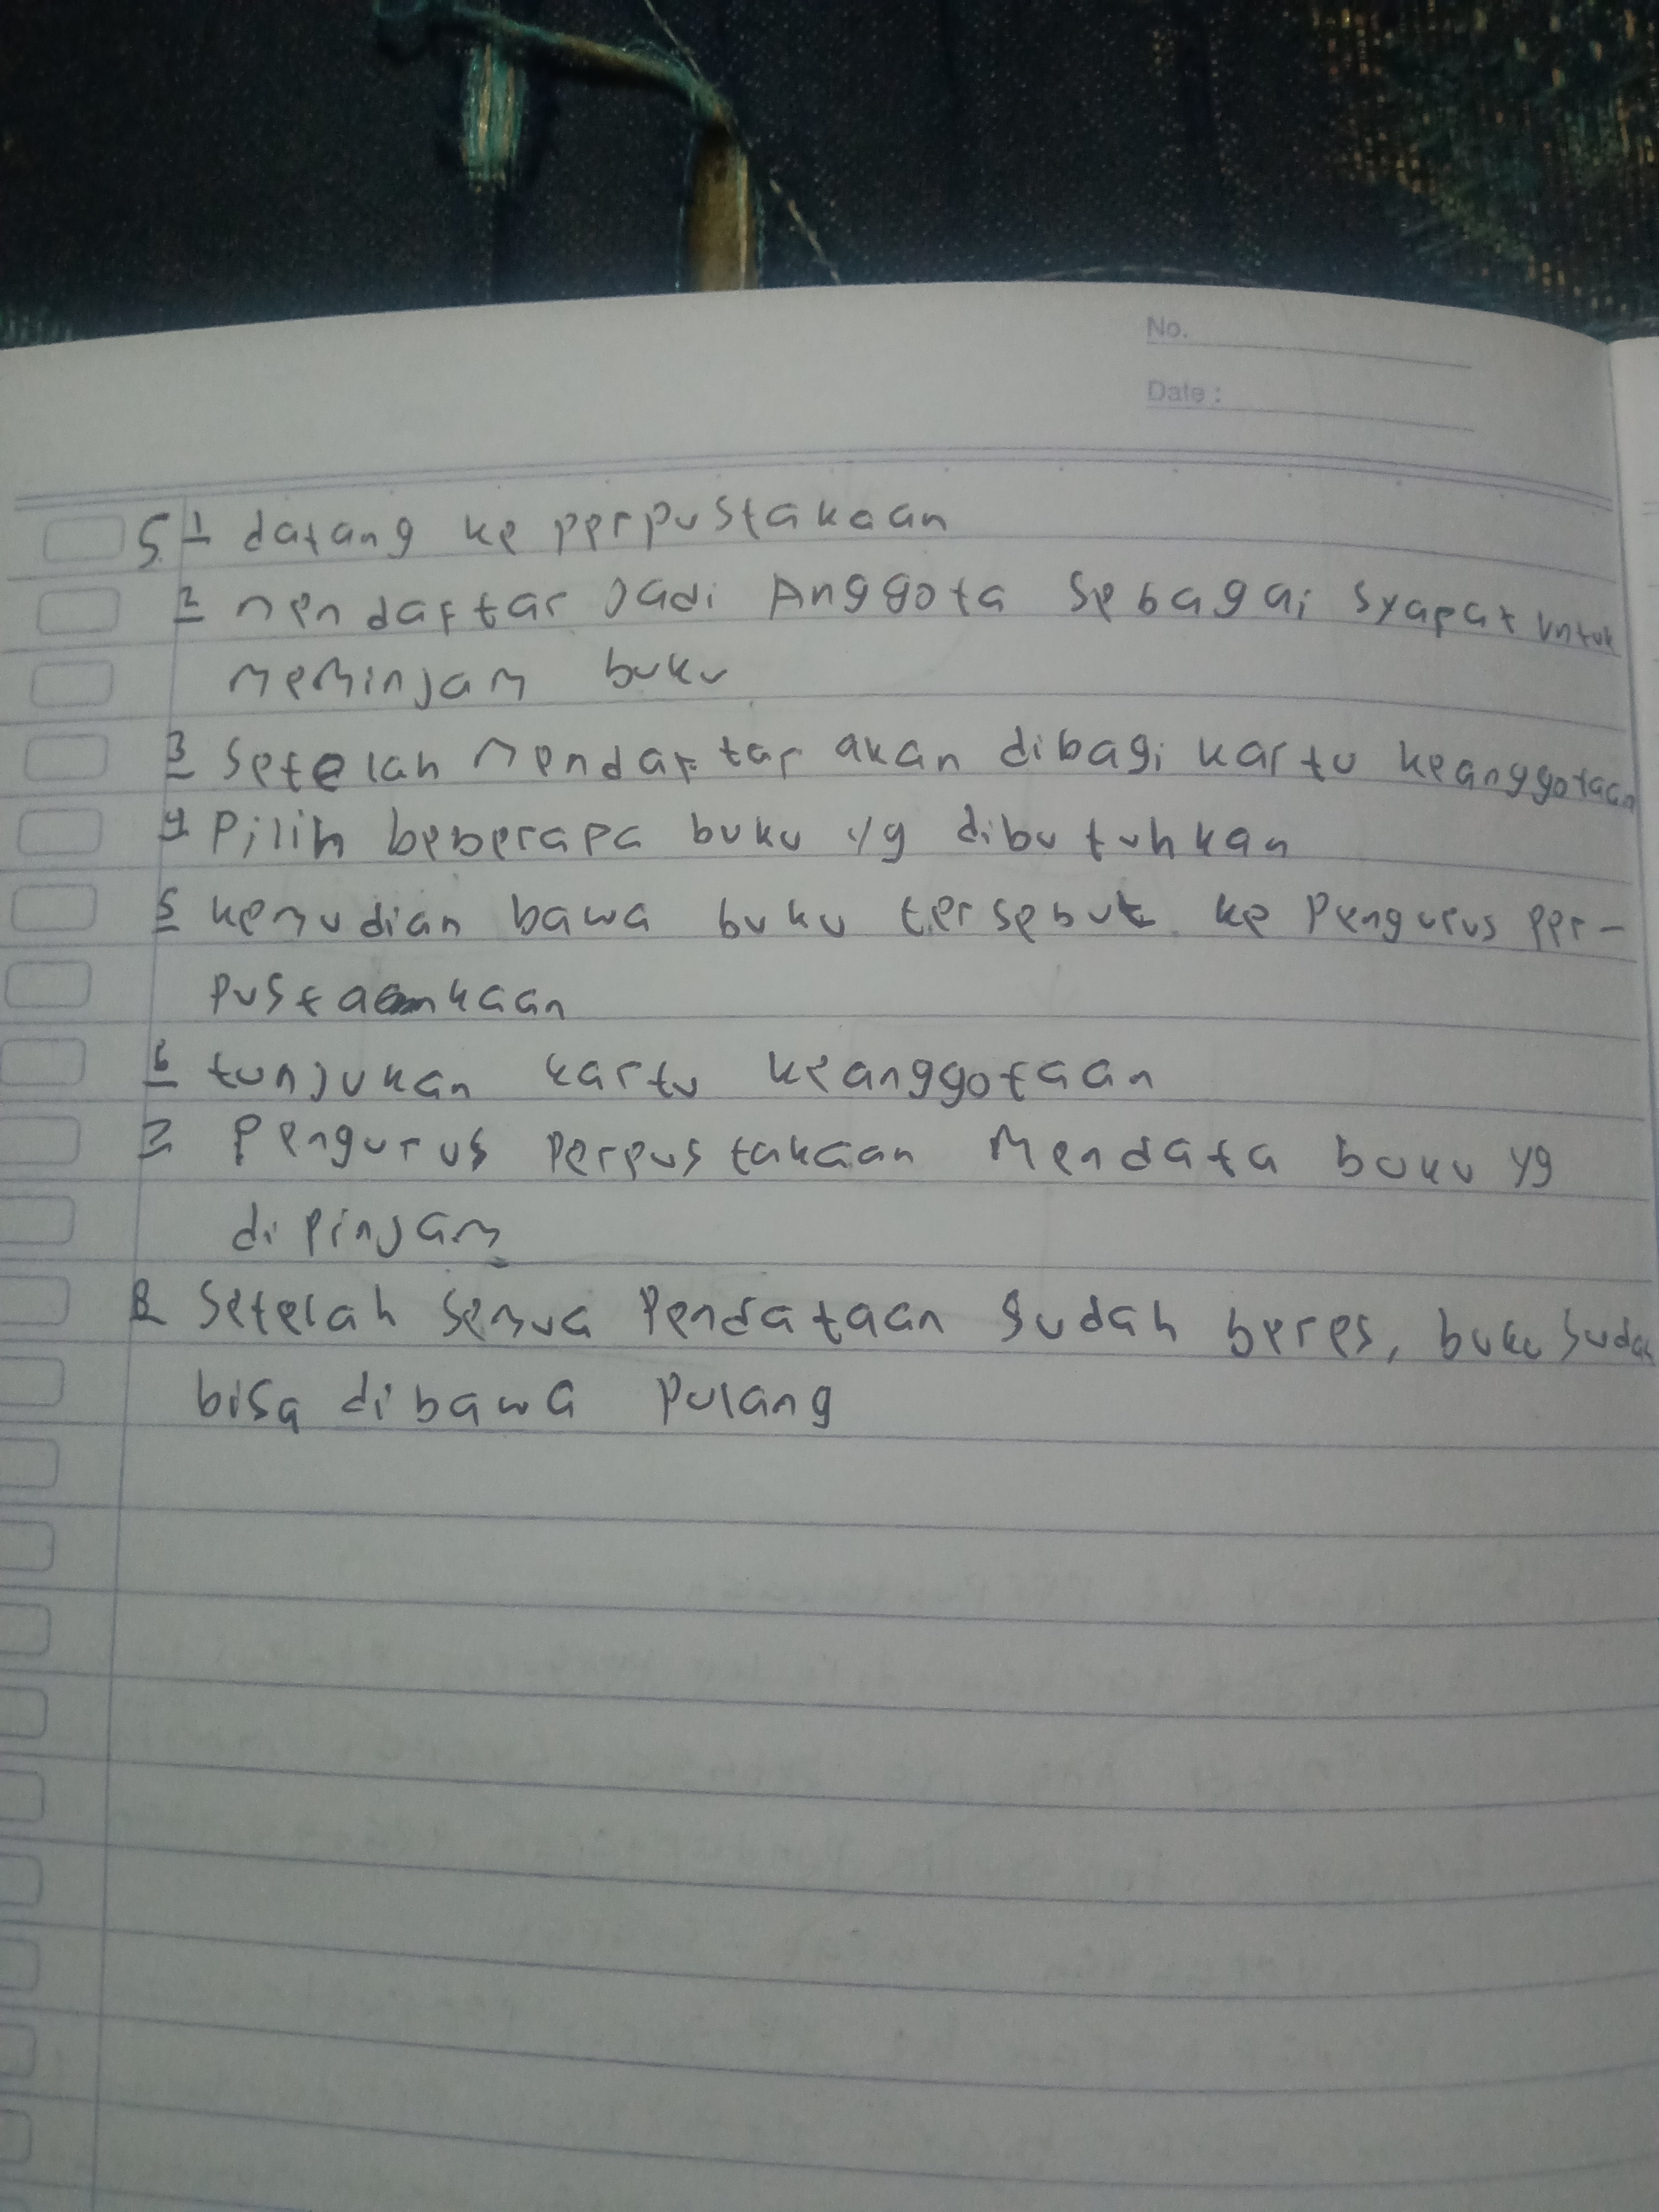 No.
Date :
5. 1 datang ke perpustakaan
2 mendaftar Jadi Anggota Sebagai Syarat untuk
meminjam buku
3 Setelah mendaftar akan dibagi kartu keanggotaan
4 Pilih beberapa buku yg dibutuhkan
5 kemudian bawa buku tersebut ke Pengurus per-
pustakaan
6 tunjukan kartu keanggotaan
7 Pengurus perpustakaan Mendata buku yg
dipinjam
8 Setelah Semua Pendataan Sudah beres, buku Sudah
bisa dibawa Pulang